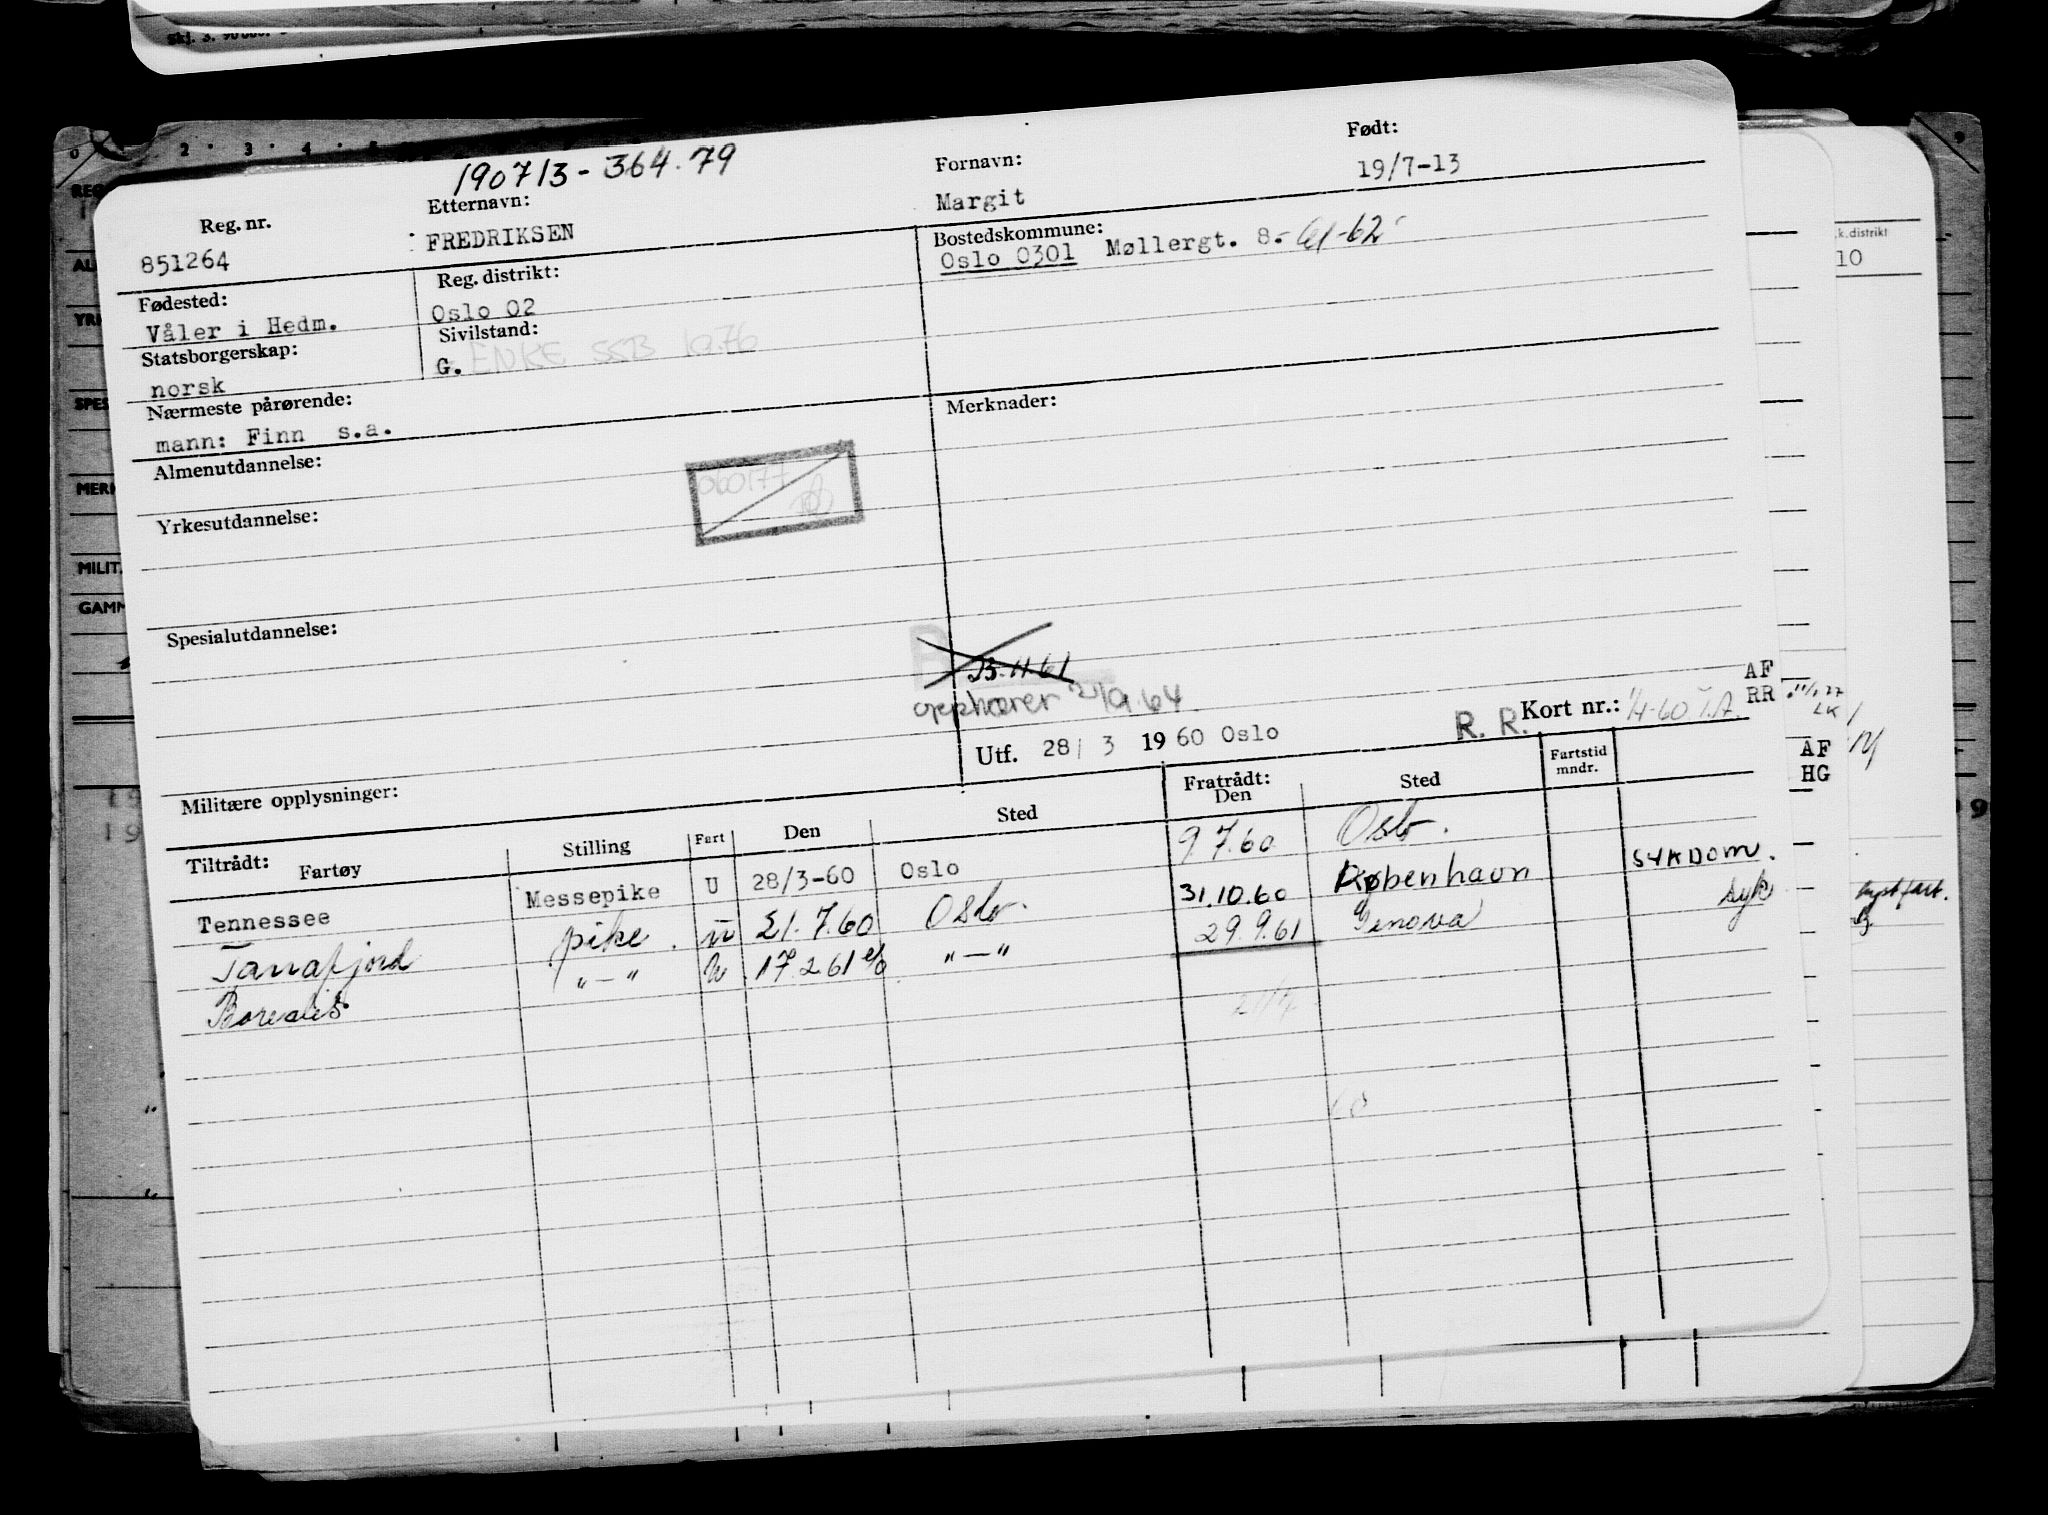 190713-364.79
Reg. nr. Etternavn: Fornavn: Født:
851264 FREDRIKSEN Margit 19/7-13
Fødested: Reg. distrikt: Bostedskommune:
Våler i Hedm. Oslo 02 Oslo 0301 Møllergt. 8.- 61-62
Statsborgerskap: Sivilstand:
norsk G. ENKE SSB 1976
Nærmeste pårørende: Merknader:
mann: Finn s.a.
Almenutdannelse:
060177
Yrkesutdannelse:
Spesialutdannelse:
opphører
Utf. 28/ 3 1960 Oslo R. R. Kort nr.:
AF
RR
AF
HG
Militære opplysninger:
Tiltrådt: Fratrådt: Fartstid
Fartøy Stilling Fart Den Sted Den Sted mndr.
Tennessee Messepike U 28/3-60 Oslo 9.7.60 Oslo.
Tanafjord pike. U 21.7.60 Oslo. 31.10.60 København SYKDOM.
Borealis "—" U 17.2.61 "—" 29.9.61 Genova syk
k.distrikt
10